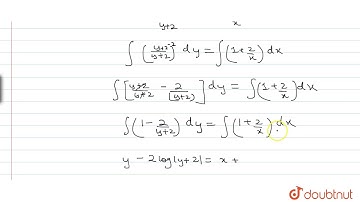 y+2 x
∫ (y+2-2 / y+2) dy = ∫ (1+2/x) dx
∫ [y+2/y+2 - 2/(y+2)] dy = ∫ (1+2/x) dx
∫ (1 - 2/y+2) dy = ∫ (1+2/x) dx
y - 2 log |y+2| = x +
doubtnut